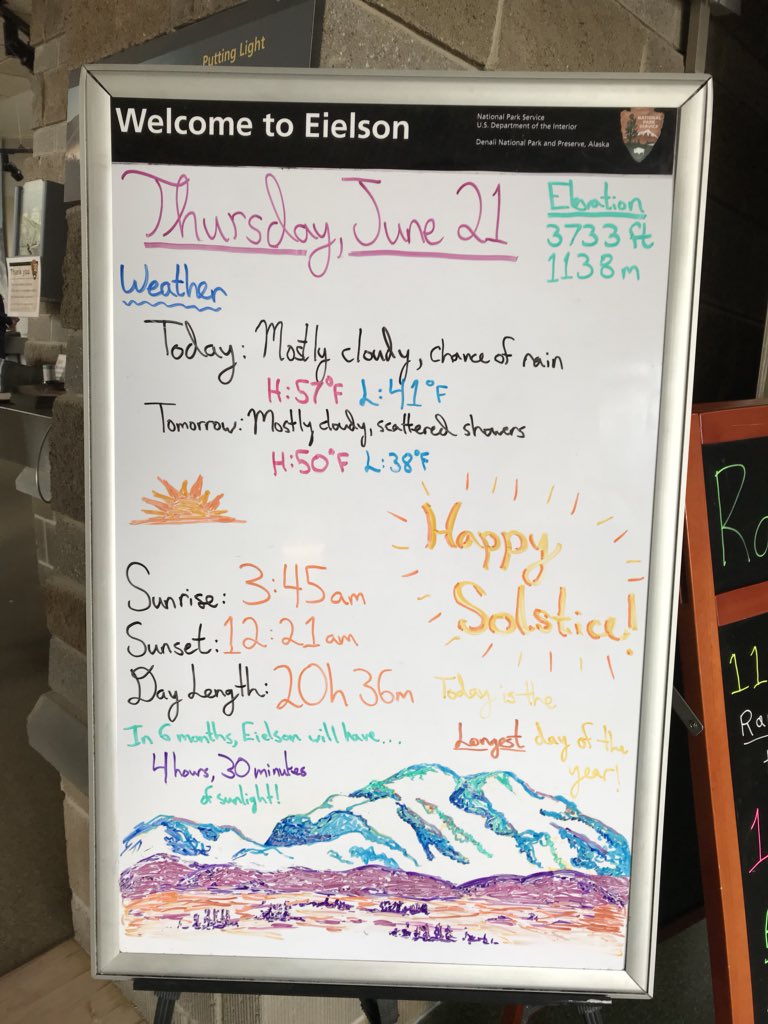 Putting Light
Welcome to Eielson
National Park Service
U.S. Department of the Interior
Denali National Park and Preserve, Alaska
NATIONAL
PARK
SERVICE
Thursday, June 21
Elevation
3733 ft
1138 m
Weather
Thank you
Today: Mostly cloudy, chance of rain
H:57°F L:41°F
Tomorrow: Mostly cloudy, scattered showers
H:50°F L:38°F
Happy
Solstice!
Sunrise: 3:45am
Sunset: 12:21am
Day Length: 20h 36m
Today is the
Longest day of the
year!
In 6 months, Eielson will have...
4 hours, 30 minutes
of sunlight!
11